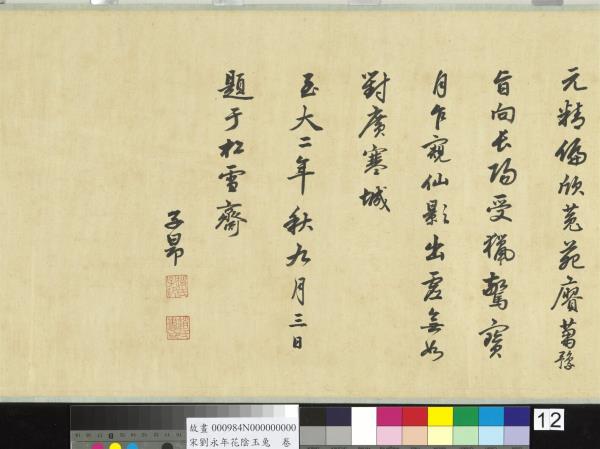 元精偏欣菟苑賡蕚豫
旨向長楊受獵驚寶
月乍窺仙影出虛無如
對廣寒城
至大二年秋九月三日
題于松雪齋
子昂
12
故畫 000984N000000000
宋劉永年花陰玉兎 卷